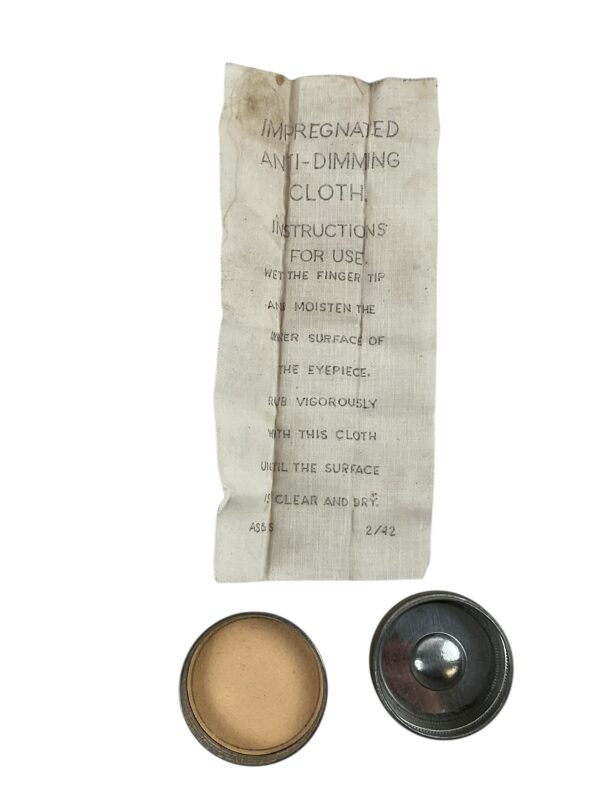 IMPREGNATED
ANTI-DIMMING
CLOTH.
INSTRUCTIONS
FOR USE.
WET THE FINGER TIP
AND MOISTEN THE
INNER SURFACE OF
THE EYEPIECE.
RUB VIGOROUSLY
WITH THIS CLOTH
UNTIL THE SURFACE
IS CLEAR AND DRY.
2/42